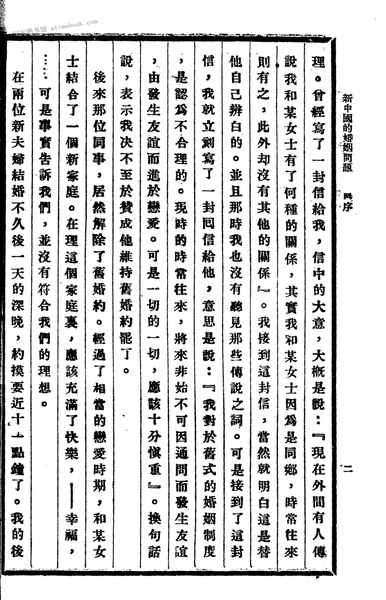 新中國的婚姻問題　序　二
理。曾經寫了一封信給我，信中的大意，大概是說：『現在外間有人傳
說我和某女士有了何種的關係，其實我和某女士因為是同鄉，時常往來
則有之，此外却沒有其他的關係』。我接到這封信，當然就明白這是替
他自己辨白的。並且那時我也沒有聽見那些傳說之詞。可是接到了這封
信，我就立刻寫了一封囘信給他，意思是說：『我對於舊式的婚姻制度
，是認爲不合理的。現時的時常往來，將來非始不可因通問而發生友誼
，由發生友誼而進於戀愛。可是一切的一切，應該十分慎重』。換句話
說，表示我决不至於賛成他維持舊婚約罷了。
後來那位同事，居然解除了舊婚約。經過了相當的戀愛時期，和某女
士結合了一個新家庭。在理這個家庭裏，應該充滿了快樂，——幸福，
……可是事實告訴我們，並沒有符合我們的理想。
在兩位新夫婦結婚不久後一天的深晚，約摸要近十一點鐘了。我的後